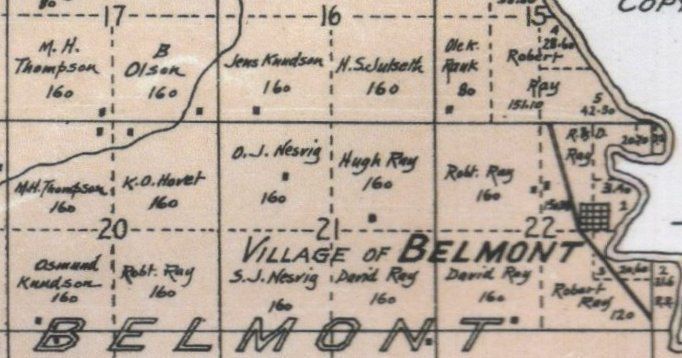 80
17
16
15
COPY
4
28.60
M. H.
Thompson
160
B
Olson
160
Jens Knudson
160
H. S. Julseth
160
Ole K.
Rauk
80
Robert
Ray
151.10
5
42.50
R. & D.
Ray
20.20
O. J. Nesvig
160
Hugh Ray
160
Robt. Ray
160
M. H. Thompson
160
K. O. Hovet
160
1
20
21
22
VILLAGE OF BELMONT
Osmund
Knudson
160
Robt. Ray
160
S. J. Nesvig
160
David Ray
160
David Ray
160
Robert
Ray
120
3
20.60
2
BELMONT